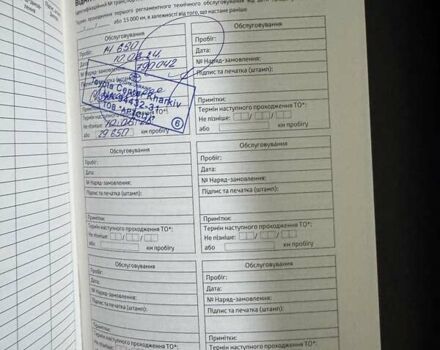 Ідентифікаційний № транспорт
Термін проходження першого регламентного технічного обслуговування від дати
або 15 000 км, в залежності від того, що настане раніше
Обслуговування
Пробіг: 14 650
Дата: 10.06.24
№ Наряд-замовлення: 190042
Toyota Center Kharkiv
ТОВ "АРТСІТІ"
6
Термін наступного проходження ТО*:
Не пізніше:
або 29 650 км пробігу
Обслуговування
Пробіг:
Дата:
№ Наряд-замовлення:
Підпис та печатка (штамп):
Примітки:
Термін наступного проходження ТО*:
Не пізніше:
або км пробігу
Обслуговування
Пробіг:
Дата:
№ Наряд-замовлення:
Підпис та печатка (штамп):
Примітки:
Термін наступного проходження ТО*:
Не пізніше:
або км пробігу
Обслуговування
Пробіг:
Дата:
№ Наряд-замовлення:
Підпис та печатка (штамп):
Примітки:
Термін наступного проходження ТО*:
Не пізніше:
або км пробігу
Обслуговування
Пробіг:
Дата:
№ Наряд-замовлення:
Підпис та печатка (штамп):
Примітки:
Термін наступного проходження ТО*:
Не пізніше:
Обслуговування
Пробіг:
Дата:
№ Наряд-замовлення:
Підпис та печатка (штамп):
Примітки:
Термін наступного проходження ТО*:
Не пізніше: